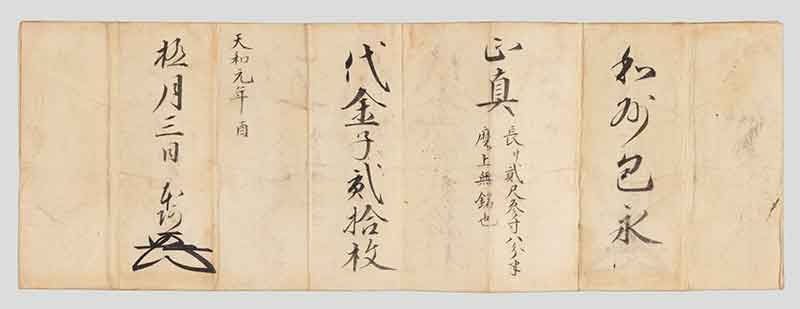 和州包永
正真
長サ貳尺参寸八分半
磨上無銘也
代金子貳拾枚
天和元年酉
極月三日 本阿